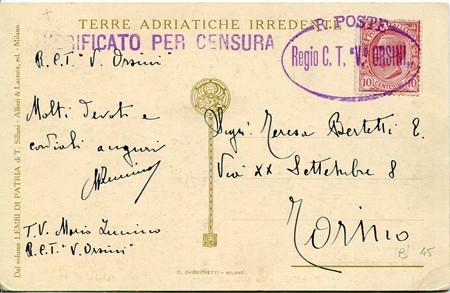 TERRE ADRIATICHE IRREDENTE
VERIFICATO PER CENSURA
R. POSTE
Regio C. T. "V. ORSINI"
10 CENTESIMI 10
R.C.T. "V. Orsini"
Molti devoti e
cordiali auguri
T.V. Mario
R.C.T. "V. Orsini"
Sigra Teresa Bertetti E.
Via XX Settembre 8
Torino
45
Dal volume LEMBI DI PATRIA di T. Sillani - Alfieri & Lacroix, ed. - Milano
MILANO